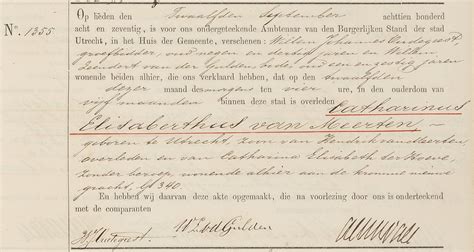 Op heden den Twaalfden September achttien honderd
No. 1355
acht en zeventig, is voor ons ondergeteekende Ambtenaar van den Burgerlijken Stand der stad
Utrecht, in het Huis der Gemeente, verschenen: Willem Johannes Oudegeest,
groefbidder, oud negen en dertig jaren en Willem
van der Gulden, oud een en zestig jaren
wonende beiden alhier, die ons verklaard hebben, dat op twaalfden
dezer maand des morgens ten vier ure, in den ouderdom van
vijf maanden binnen deze stad is overleden Catharinus
Elisaberthus van Meerten,
geboren te Utrecht, zoon van Hendrik van Meerten,
overleden en van Catharina Elisabeth ter Hoeve,
zonder beroep, wonende alhier aan de kromme nieuwe
gracht, 340.
En hebben wij daarvan deze akte opgemaakt, die na voorlezing door ons is onderteekend
met de comparanten
WJ Oudegeest W Z v d Gulden